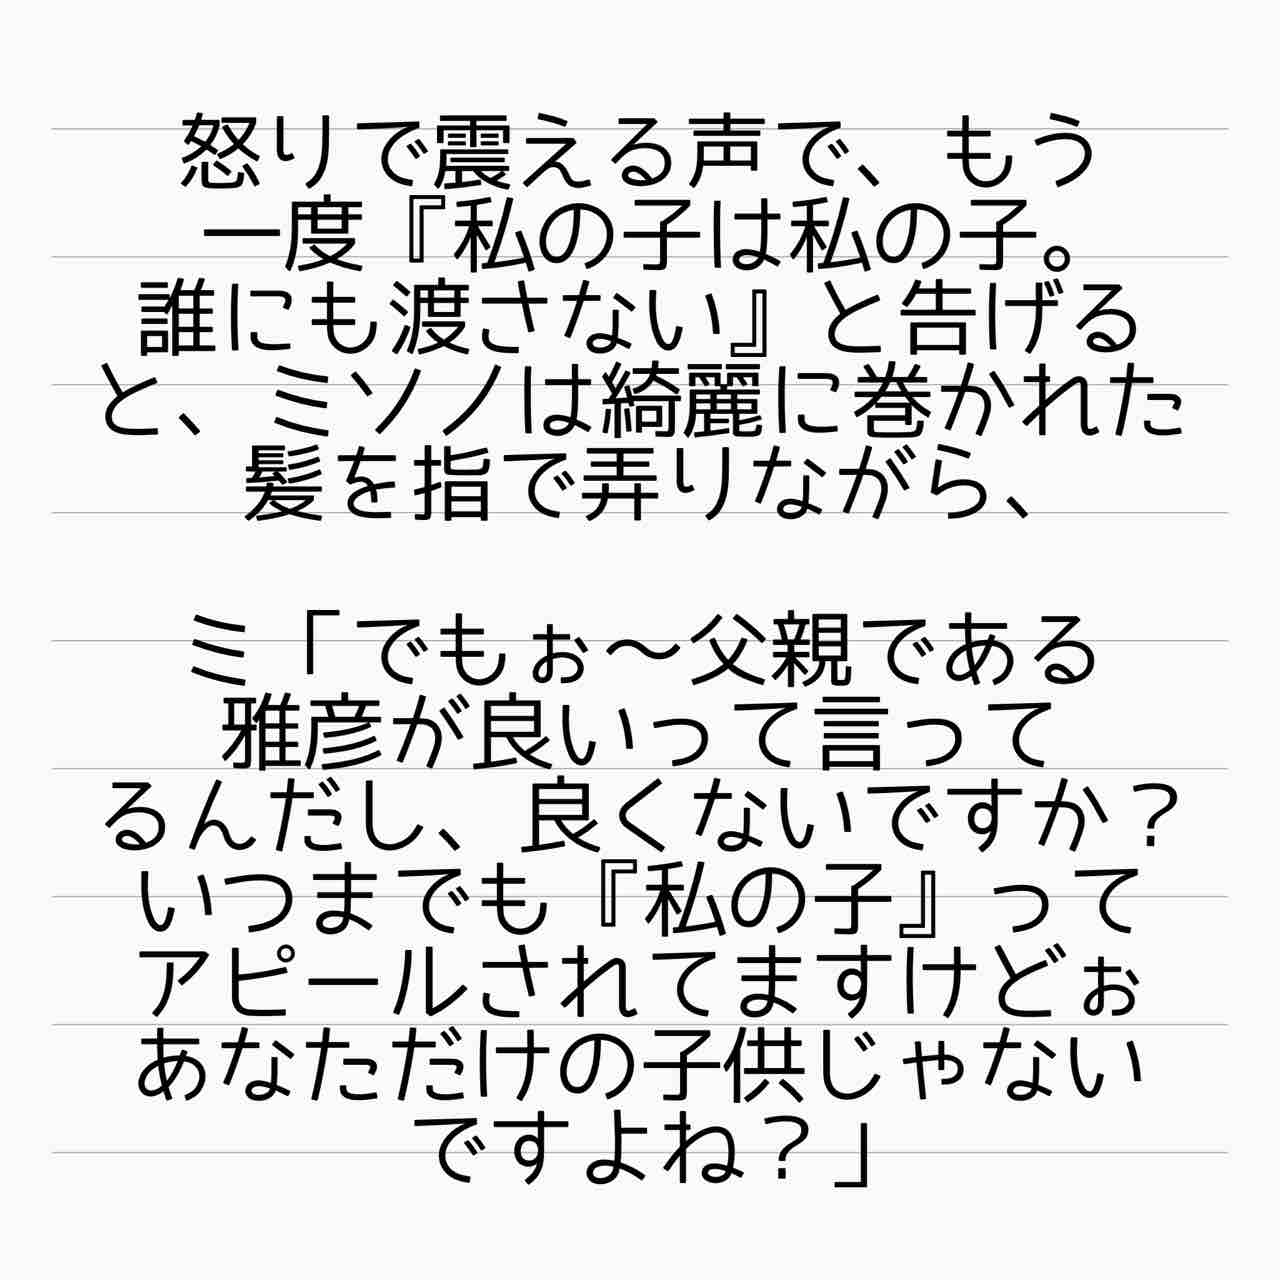 怒りで震える声で、もう
一度『私の子は私の子。
誰にも渡さない』と告げる
と、ミソノは綺麗に巻かれた
髪を指で弄りながら、
ミ「でもぉ〜父親である
雅彦が良いって言って
るんだし、良くないですか？
いつまでも『私の子』って
アピールされてますけどぉ
あなただけの子供じゃない
ですよね？」